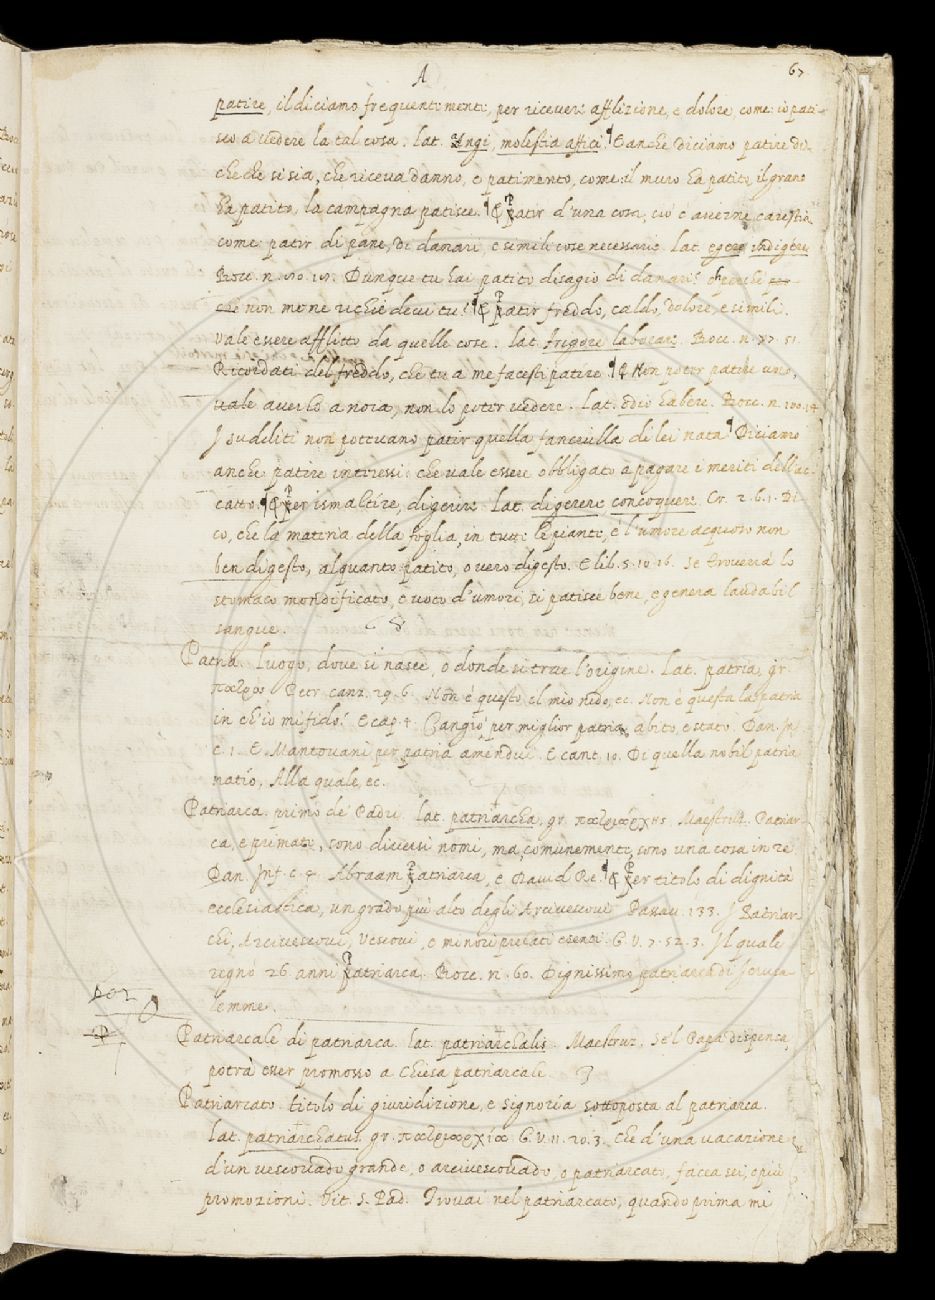 A 67
patire, il diciamo frequentemente, per ricever afflizione, e dolore come: io pati-
sco a vedere la tal cosa. lat. Angi, molestia affici. ¶ E anche diciamo patire di
che che si sia, che riceva danno, e patimento, come il muro ha patito, il grano
ha patito, la campagna patisce. ¶ & Patir d'una cosa, cio è averne carestia
come patir di pane, di danari, e simili cose necessarie. lat. egere indigere
Bocc. n. 80. 18. Dunque tu hai patito disagio di danari? o perche
che non me ne richiedevi tu? ¶ & Patir freddo, caldo, dolore, e simili.
vale essere afflitto da quelle cose. lat. frigore laborare. Bocc. n. 77. 51.
Ricordati del freddo, che tu a me facesti patire ¶ & Non poter patire uno,
vale averlo a noia, non lo poter vedere. Lat. odio habere. Bocc. n. 100. 14
I sudditi non potevano patir quella fanciulla di lei nata ¶ Diciamo
anche patire interessi: che vale essere obbligato a pagare i meriti dell'ac-
catto. ¶ & Per ismaltire, digerire lat. digerere concoquere Cr. 2. 6. 1. Di-
co, che la materia della foglia, in tutte le piante, è l'umore acquoso non
ben digesto, alquanto patito, overo digesto. E lib. 5. 10 16. Se troverrà lo
stomaco mondificato, e voto d'umori, si patisce bene, e genera laudabil
sangue.
Patria. luogo, dove si nasce, o donde si trae l'origine. Lat. patria, gr.
Petr. canz. 29. 6. Non è questo el mio nido, ec. Non è questa la patria
in ch'io mi fido? E cap. 4. Cangiò per miglior patria abito, e stato. Dan. Inf
c. 1. E Mantovani per patria amendui. E cant. 10. Di quella nobil patria
natio, Alla quale, ec.
Patriarca. primo de' Padri. lat. patriarcha, gr. πατριάρχης Maestruz. Patriar-
ca, e primate, sono diversi nomi, ma comunemente sono una cosa in re
Dan. Inf. c. 4. Abraam Patriarca, e David Re. ¶ & Per titolo di dignità
ecclesiastica, un grado più alto degli Arcivescovi Passav. 133. I Patriar-
chi, Arcivescovi, Vescovi, e minori prelati esenti. G. V. 7. 52. 3. Il quale
regnò 26. anni Patriarca. Bocc. n. 60. Dignissimo patriarca di Jerusa-
lemme.
Patriarcale di patriarca. lat. patriarchalis. Maestruz. Se'l Papa dispensa,
potrà esser promosso a Chiesa patriarcale
Patriarcato. titolo di giuridizione, e signoria sottoposta al patriarca.
Lat. patriarchatus. gr. πατριαρχία G. V. 11. 20. 3. Che d'una vacazione
d'un vescovado grande, o arcivescovado, o patriarcato, facea sei, e più
promozioni. Vit. S. Pad. Trovai nel patriarcato, quando prima mi